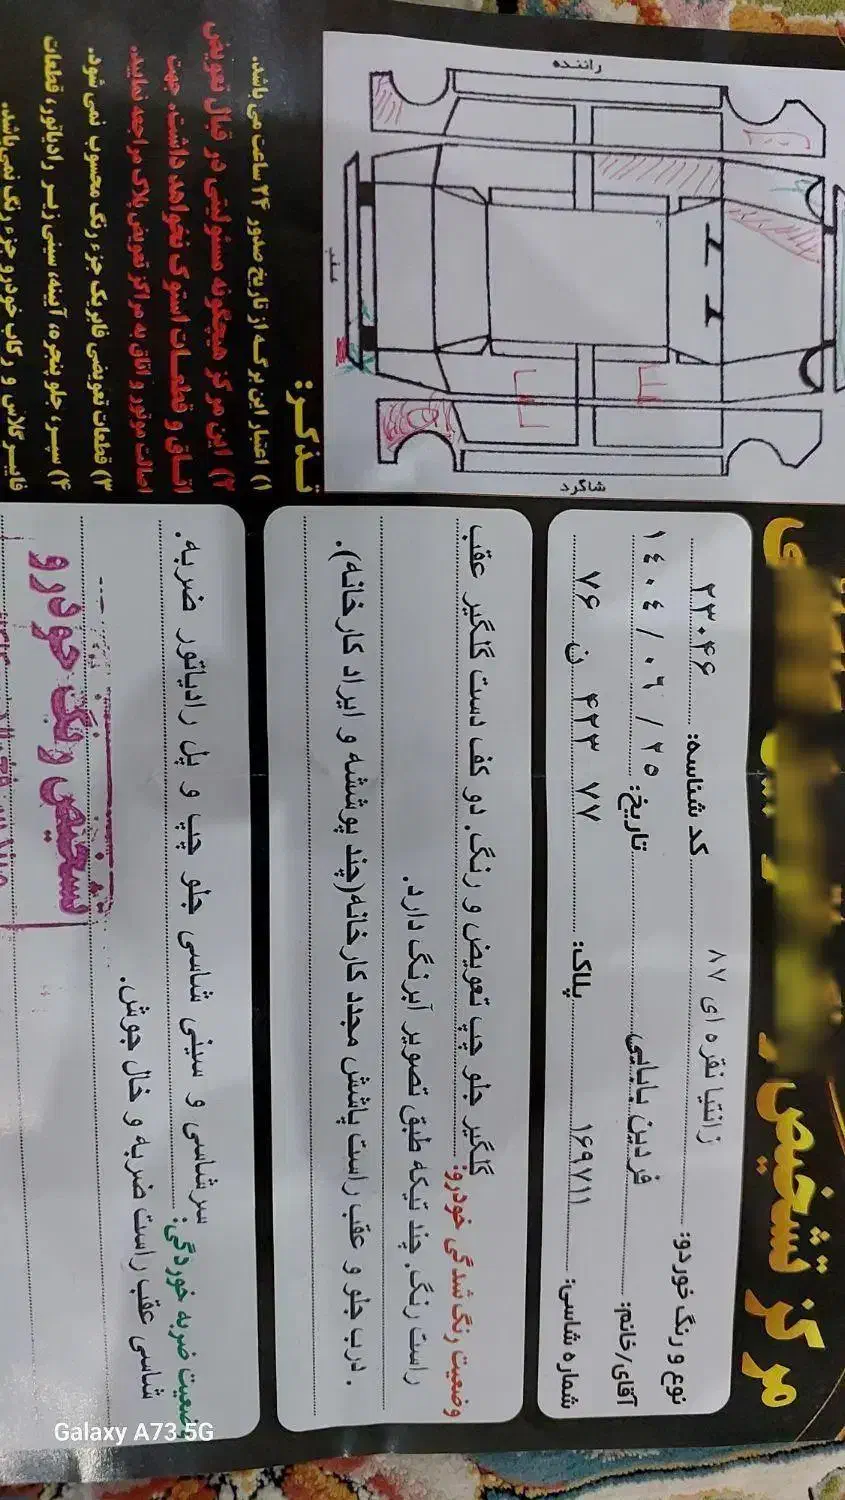 مرکز تشخیص ر
نوع و رنگ خوردو: زانتیا نقره ای ۸۷
کد شناسه: ۲۳۰۴۶
آقای/خانم: فردین بابایی
تاریخ: ۱٤۰٤/۰٦/۲٥
شماره شاسی: ۱۶۹۷۱۱
پلاک: ۷۷ ۴۲۳ ن ۷۶
وضعیت رنگ شدگی خودرو: گلگیر جلو چپ تعویض و رنگ. دو کف دست گلگیر عقب
راست رنگ. چند تیکه طبق تصویر آبرنگ دارد.
.درب جلو و عقب راست پاشش مجدد کارخانه(چند پوششه و ایراد کارخانه).
وضعیت ضربه خوردگی: سرشاسی و سینی شاسی جلو چپ و پل رادیاتور ضربه.
شاسی عقب راست ضربه و خال جوش.
تشخیص رنگ خودرو
راننده
شاگرد
تذکر:
۱) اعتبار این برگه از تاریخ صدور ۲۴ ساعت می باشد.
۲) این مرکز هیچگونه مسئولیتی در قبال تعویض
اتاق و قطعات استوک نخواهد داشت. جهت
اصالت موتور و اتاق به مراکز تعویض پلاک مراجعه نمایید.
۳) قطعات تعویضی فابریک جزء رنگ محسوب نمی شود.
۴) سپر، جلو پنجره، آیینه، سینی زیر رادیاتور، قطعات
فایبرگلاس و رکاب خودرو جزء رنگ نمی باشد.
Galaxy A73 5G